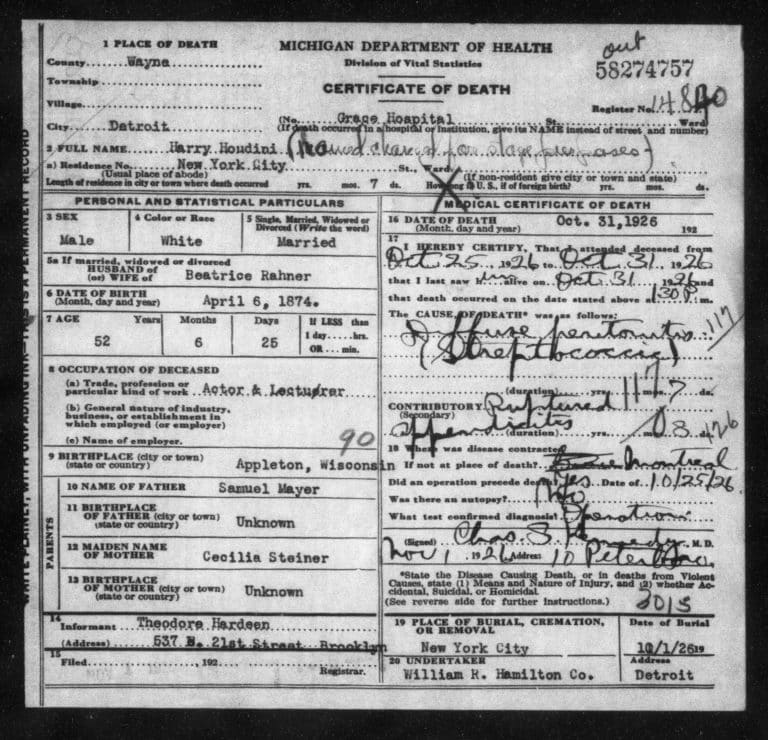 1 PLACE OF DEATH
MICHIGAN DEPARTMENT OF HEALTH
out
County Wayne
Division of Vital Statistics
58274757
Township
CERTIFICATE OF DEATH
Village
Register No. 14840
City Detroit
(No. Grace Hospital St. Ward)
(If death occurred in a hospital or institution, give its NAME instead of street and number)
2 FULL NAME Harry Houdini (Name changed for stage purposes)
a) Residence No. New York City St., Ward.
(Usual place of abode)
(If non-resident give city or town and state)
Length of residence in city or town where death occurred yrs. mos. 7 ds. How long in U.S., if of foreign birth? yrs. mos. ds.
PERSONAL AND STATISTICAL PARTICULARS
3 SEX
Male
4 Color or Race
White
5 Single, Married, Widowed or Divorced (Write the word)
Married
5a If married, widowed or divorced
HUSBAND of
(or) WIFE of Beatrice Rahner
6 DATE OF BIRTH
(Month, day and year) April 6, 1874.
7 AGE Years Months Days If LESS than
1 day....hrs.
52 6 25 OR....min.
8 OCCUPATION OF DECEASED
(a) Trade, profession or
particular kind of work Actor & Lecturer
(b) General nature of industry,
business, or establishment in
which employed (or employer)
(c) Name of employer.
90
9 BIRTHPLACE (city or town)
(state or country) Appleton, Wisconsin
PARENTS
10 NAME OF FATHER Samuel Mayer
11 BIRTHPLACE
OF FATHER (city or town)
(state or country) Unknown
12 MAIDEN NAME
OF MOTHER Cecilia Steiner
13 BIRTHPLACE
OF MOTHER (city or town)
(state or country) Unknown
14
Informant Theodore Hardeen
(Address) 537 E. 21st Street, Brooklyn
15
Filed, 192
Registrar.
MEDICAL CERTIFICATE OF DEATH
16 DATE OF DEATH Oct. 31,1926
(Month, day and year) 192
17
I HEREBY CERTIFY, That I attended deceased from
Oct 25 1926 to Oct 31 1926
that I last saw him alive on Oct 31 1926 and
that death occurred on the date stated above at 130 P. m.
The CAUSE OF DEATH* was as follows:
Diffuse peritonitis 117
(Streptococcic)
(duration) yrs. mos. ds.
117
CONTRIBUTORY Ruptured
(Secondary)
appendicitis
(duration) yrs.
18 Where was disease contracted
If not at place of death? Montreal
Did an operation precede death? Yes Date of 10/25/26.
Was there an autopsy? No
What test confirmed diagnosis? Operation
(Signed) Chas S Kennedy, M. D.
Nov 1 1926 Address 10 Peterboro.
*State the Disease Causing Death, or in deaths from Violent
Causes, state (1) Means and Nature of Injury, and (2) whether Ac-
cidental, Suicidal, or Homicidal.
(See reverse side for further instructions.)
3015
19 PLACE OF BURIAL, CREMATION,
OR REMOVAL
New York City
Date of Burial
11/1/26 19
20 UNDERTAKER
William R. Hamilton Co.
Address
Detroit